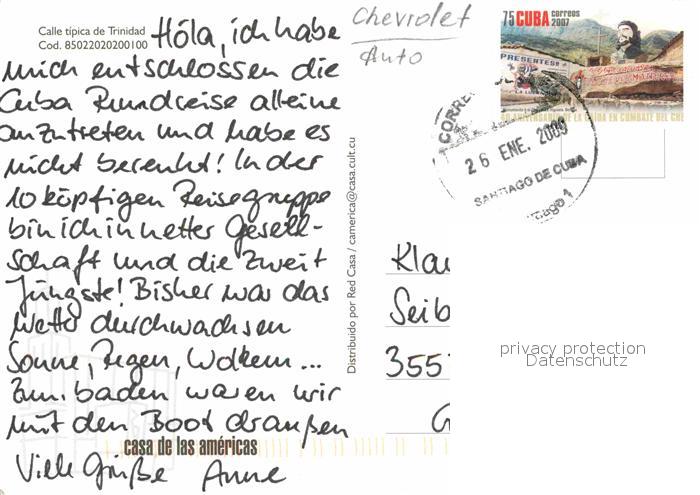 Calle típica de Trinidad
Cod. 85022020200100
Hóla, ich habe
mich entschlossen die
Cuba Rundreise alleine
anzutreten und habe es
nicht bereuht! In der
10 köpfigen Reisegruppe
bin ich in netter Gesell-
schaft und die zweit
Jüngste! Bisher war das
Wetter durchwachsen
Sonne, Regen, Wolken...
Zum baden waren wir
mit den Boot draußen
casa de las américas
Viele Grüße Anne
Distribuido por Red Casa / camerica@casa.cult.cu
Chevrolet
Auto
75 CUBA correos
2007
PRESENTES!!
DE LA CAIDA EN COMBATE DEL CHE
CORRE
26 ENE. 2009
SANTIAGO DE CUBA
Klau
Seib
355
G
privacy protection
Datenschutz